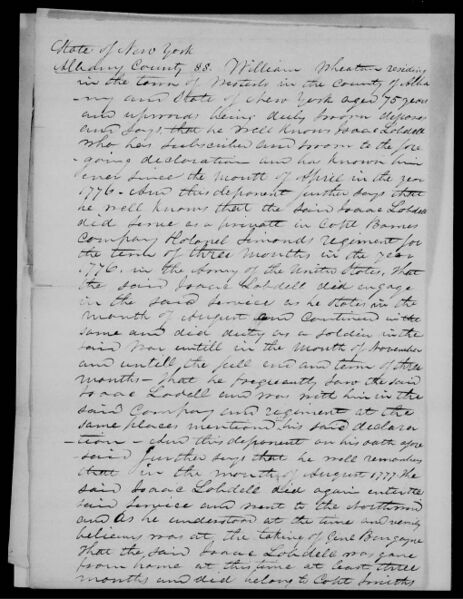 State of New York
Albany County SS. William Wheaton residing
in the town of Westerlo in the County of Alba
-ny and State of New York aged 75 years
and upwards being duly sworn deposes
and says, that he well knows Isaac Lobdell
who has subscribed and sworn to the fore
going declaration and has known him
ever since the month of April in the year
1776 - And this deponent further says that
he well knows that the said Isaac Lobdell
did serve as a private in Capt Barnes
Company Kolonel Simonds Regiment for
the term of three months in the year
1776. in the Army of the United States, that
the said Isaac Lobdell did engage
in the said service as he states in the
month of August and Continued in the
same and did duty as a soldier in the
said War untill in the month of November
and untill the full end and term of three
months - that he frequently saw the said
Isaac Lobdell and was with him in the
said Company and regiment at the
same places mentiond his said declara
-tion - And this deponent on his oath afore
said further says that he well remembers
that in the month of August 1777 the
said Isaac Lobdell did again enter the
said service and went to the Northward
and As he understood at the time and verily
believes was at, the taking of Genl Burgoyne
that the said Isaac Lobdell was gone
from home at this time at least three
months and did belong to Capt Smiths